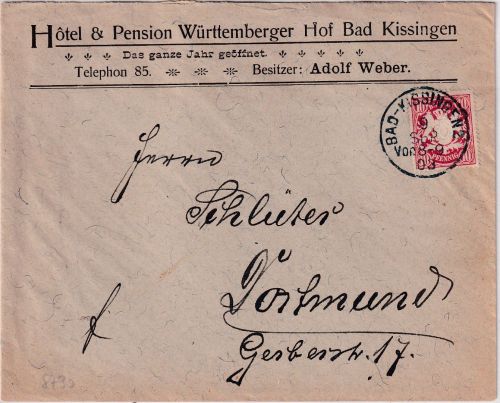 Hôtel & Pension Württemberger Hof Bad Kissingen
Das ganze Jahr geöffnet.
Telephon 85. Besitzer: Adolf Weber.
BAD-KISSINGEN 2
9
VOR 8-9
03
10
PFENNIG
Herrn
Schlüter
Dortmund
Gerberstr. 17.